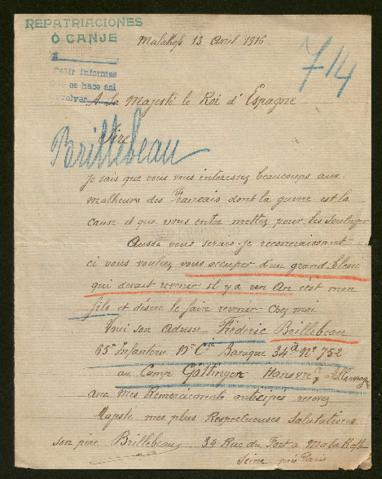 REPATRIACIONES
Ó CANJE
Malakoff 13 Avril 1916
714
Pedir informes
se hace así
A Sa Majesté le Roi d'Espagne
Sire
Brillebeau
je sais que vous vous interessez beaucoups aux
malheurs des Français dont la guerre est la
cause et que vous entre mettez pour les soulager
Aussi vous serais je reconnaissant
ci vous vouliez vous occuper d'un grand Blessé
qui devait revenir il y a un An c'est mon
fils et désire le faire revenir chez moi
Voici son Adresse Fréderic Brillebeau
65e Infanterie Cie Baraque 34a No 752
au Camp Göttingen Hanovre Allemagne
avec mes Remerciements anticipés recevez
Majesté mes plus Respectueuses Salutations
son père Brillebeau 34 Rue du Fort a Malakoff
Seine près Paris